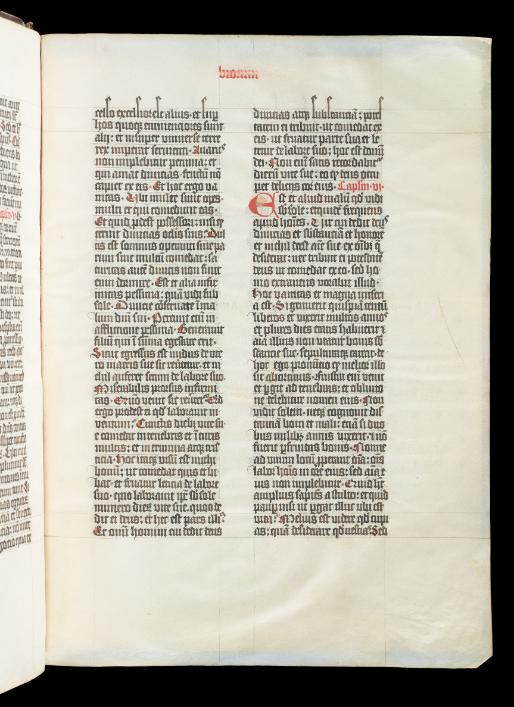 biorum
celso excelsior est alius· et sup̄
hos quoq; eminentiores sunt
alij: et insuper universe terre
rex imperat servienti· Avarus
non implebitur pecunia: et
qui amat divitias· fructū nō
capiet ex eis· Et hoc ergo va
nitas· Ubi multe sunt opes·
multi et qui comedunt eas·
Et quid p̄dest possessori: nisi q̄
cernit divitias oclis suis· Dul
cis est somnus operanti sive pa
rum sive multum comedat: sa
turitas autē divitis non sinit
eum dormire· Est et alia infir
mitas pessima: quā vidi sub
sole· Divicie cōservate in ma
lum dn̄i sui· Pereunt em̄ in
afflictione pessima· Generavit
filiū qui ī sūma egestate erit·
Sicut egressus est nudus de ute
ro matris sue sic revertet̄: et ni
chil auferet secum de labore suo·
Miserabilis prorsus infirmi
tas· Quō venit sic revertet̄· Quid
ergo prodest ei qd̓ laboravit in
ventum: Cunctis dieb; vite su
e comedit in tenebris et ī curis
multis: et in erumna atq; tris
ticia· Hoc itaq; visū est michi
bonū: ut comedat quis et bi
bat· et fruatur leticia de labore
suo· quo laboravit ip̄e sub sole
numero dierū vite sue· quos de
dit ei deus: et hec est pars illi9·
Et omī homini cui dedit deus
divicias atq; substanciā: potes
tatem ei tribuit· ut comedat ex
eis· ut fruatur parte sua et le
tetur de labore suo: hoc est donū
dei· Non em̄ satis recordabit̄
dierū vite sue: eo q; deus occu
pet deliciis cor eius· Caplm· vi·
Est et aliud malū qd̓ vidi
sub sole: et quidē frequens
apud hōies· Vir cui dedit deus
divicias et substanciā et honorē
et nichil deest aīe sue ex oībz q̄
desiderat: nec tribuit ei potestatē
deus ut comedat ex eo· sed ho
mo extraneus vorabit illud·
Hoc vanitas et magna miseri
a est· Si genuerit quispiā centū
liberos et vixerit multos annos
et plures dies etatis habuerit z
aīa illius non utatur bonis sb̄
stancie sue· sepulturaq; careat· de
hoc ego pronūcio q; melior illo
sit abortivus· Frustra em̄ venit
et p̄git ad tenebras· et oblivio
ne delebitur nomen eius· Non
vidit solem· neq; cognovit dis
tanciā boni et mali: etiā si duo
bus milibz annis vixerit· z nō
fuerit p̄fruitus bonis· Nonne
ad unum locū p̄perant oīa: oīs
labor hōīs in ore eius: sed aīa ei
us non implebitur· Quid h̄t
amplius sapiēs a stulto: et quid
pauper nisi ut p̄gat illuc ubi est
vita: Melius est videre qd̓ cupi
as· quā desiderare qd̓ nescias· Sed